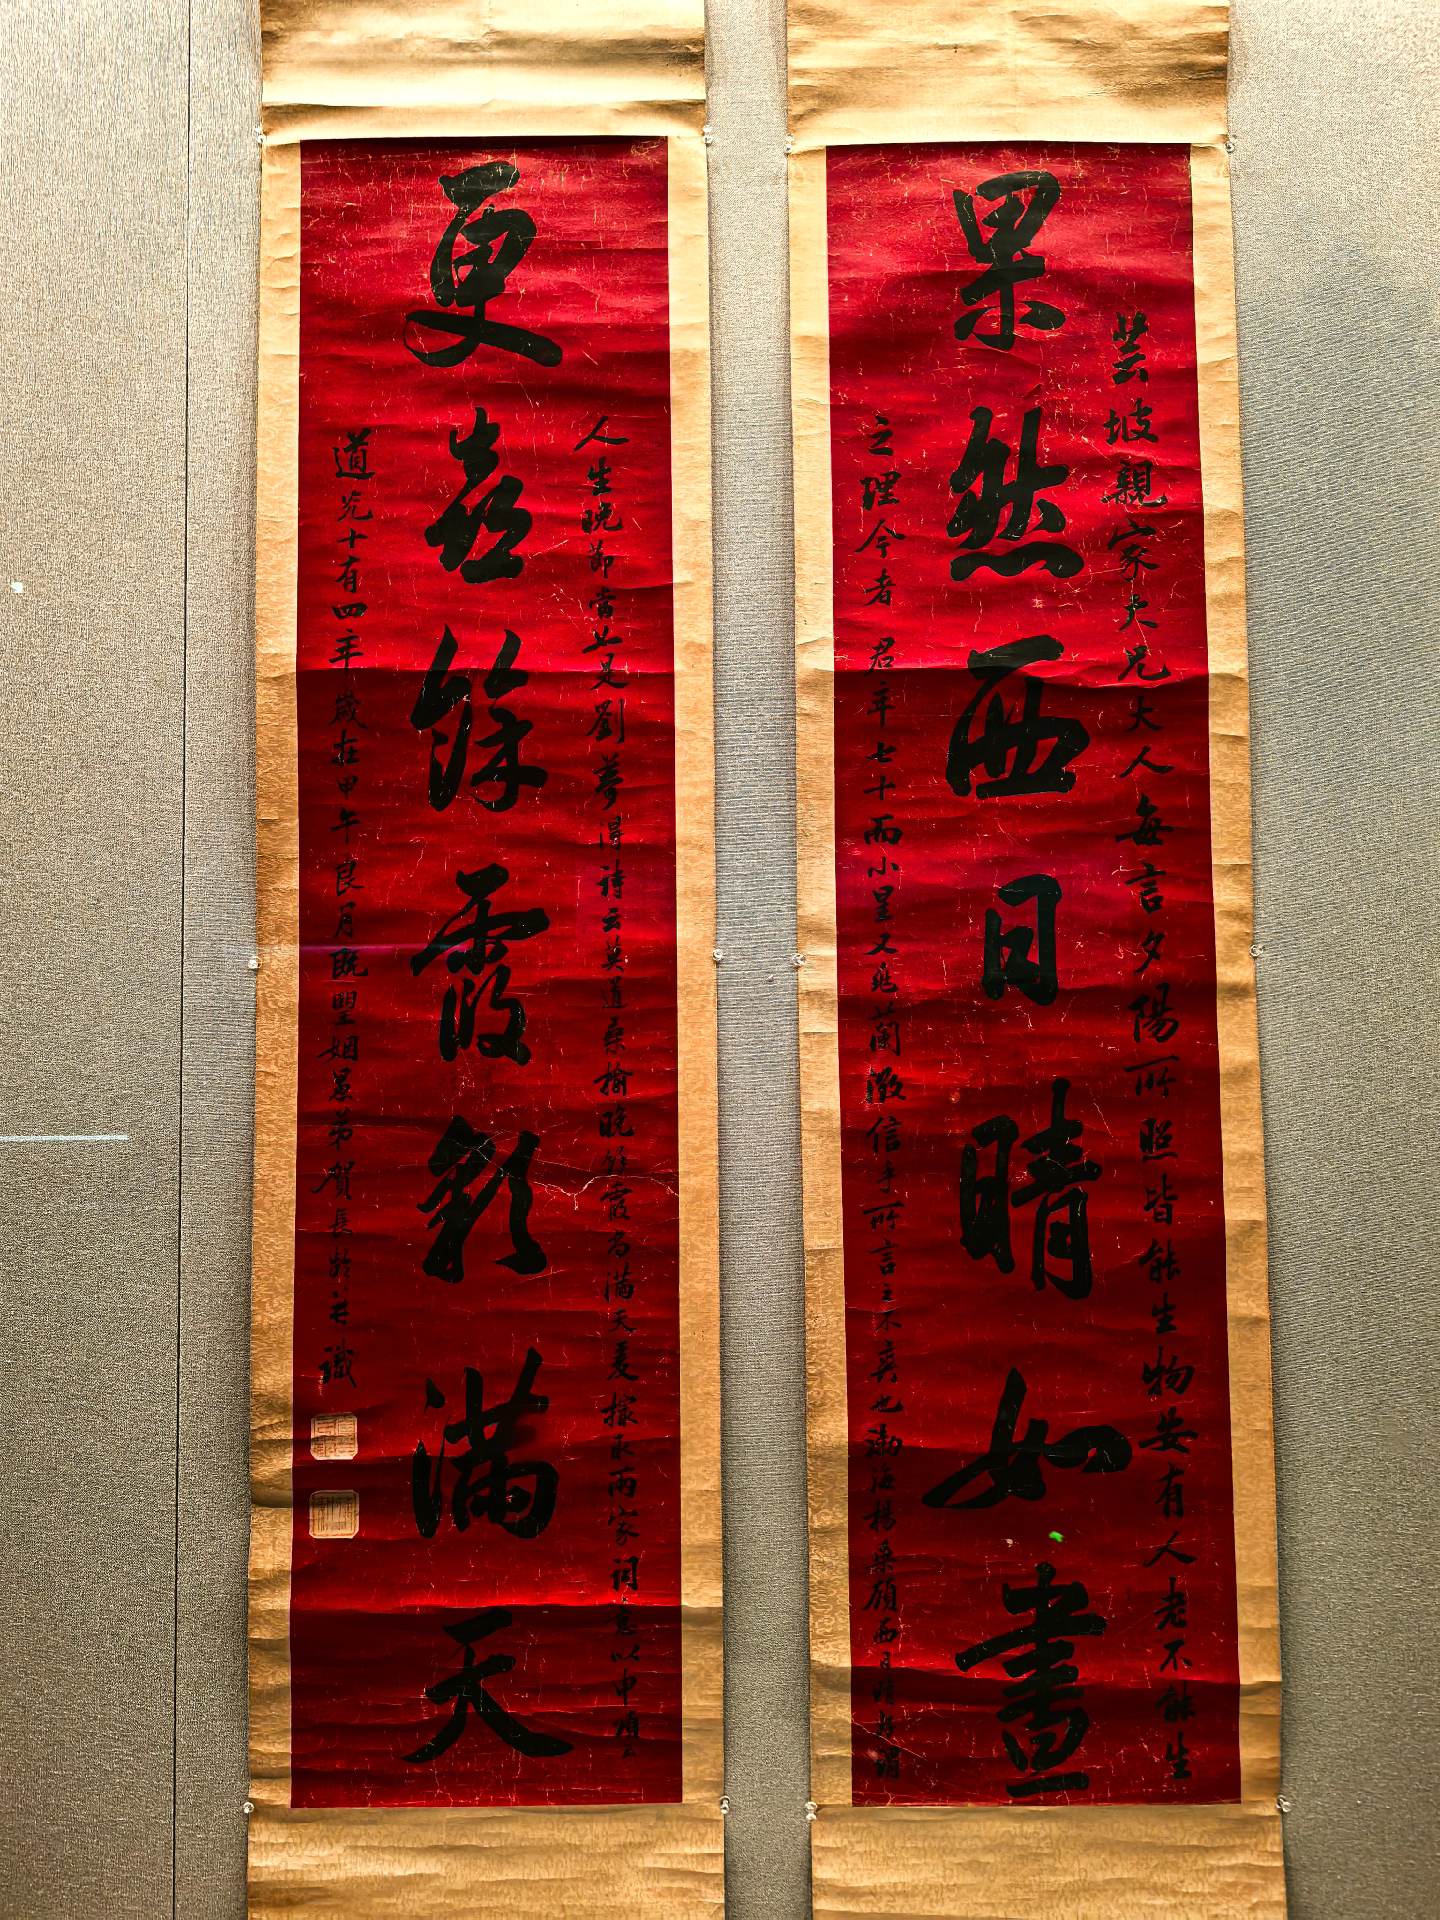 芸坡親家大兄大人每言夕陽所照皆能生物安有人老不能生
果然西日晴如畫
之理今者君年七十而小星又兆蘭徵信乎所言之不爽也渤海楊桑頤西日晴好謂
人生晚節當如是劉夢得詩云莫道桑榆晚餘霞尚滿天爰據取兩家詞意以申頌云
更喜餘霞彩滿天
道光十有四年歲在甲午良月既望姻愚弟賀長齡并識